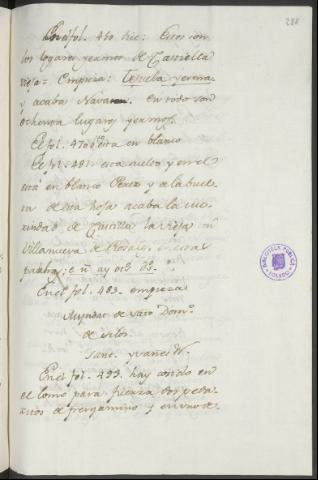 En el fol. 450 dice: Estos son
los logares yermos de Castiella
vieja = Empieza: Tesuela yerma
y acaba Navares. en todo son
ochenta lugares yermos.
El fol. 470 esta en blanco
El fol. 481 esta suelto y en el
está en blanco Perex y a la buel
ta de esta hoja acaba la
de Castilla la vieja en
Villanueva de
palabra: e ñ ay otº dº.
En el fol. 483. empieza
de Sato Domº.
de silos.
Sanc. yvanes
En el fol. 493. hay cosido en
el lomo para fuerza dos peda
zos de pergamino y en uno de
288
BIBLIOTECA PUBLICA
TOLEDO